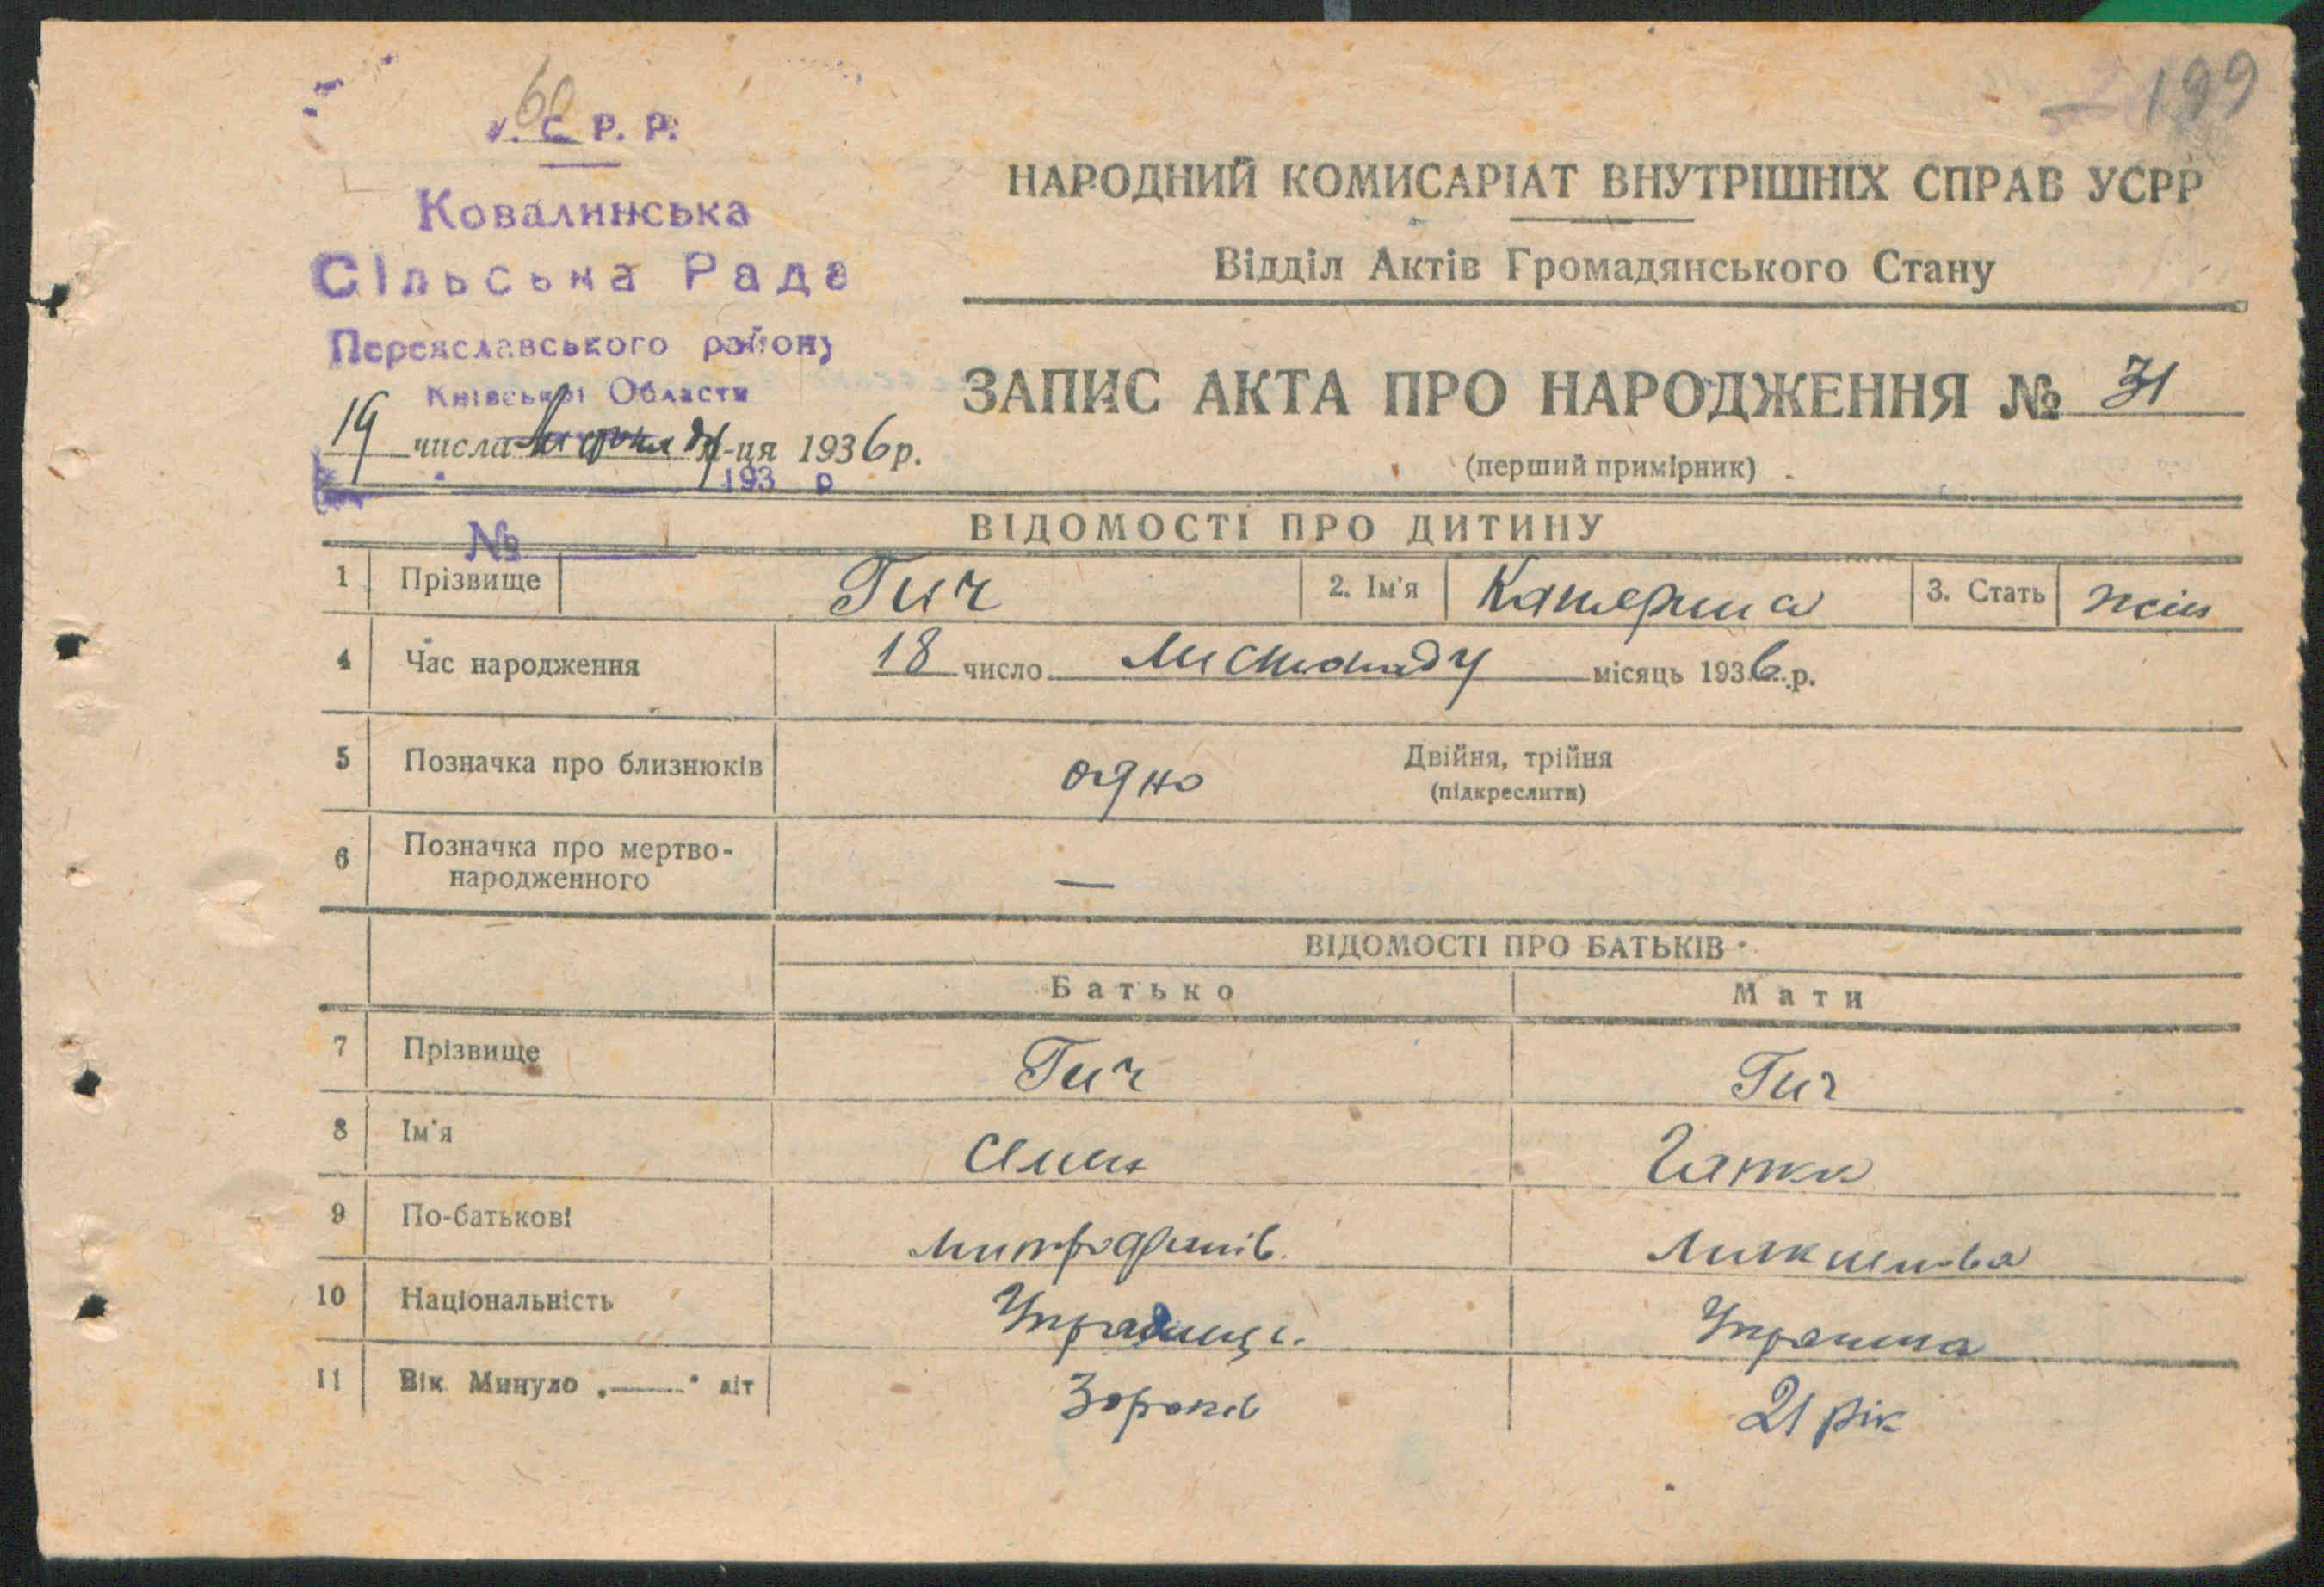 199
60
У.С.Р.Р.
Ковалинська
Сільська Рада
Переяславського району
Київської Области
19 числа листопаду м-ця 1936 р.
193 р
№
НАРОДНИЙ КОМИСАРІАТ ВНУТРІШНІХ СПРАВ УСРР
Відділ Актів Громадянського Стану
ЗАПИС АКТА ПРО НАРОДЖЕННЯ № 31
(перший примірник)
ВІДОМОСТІ ПРО ДИТИНУ
1 Прізвище Гич 2. Ім'я Катерина 3. Стать жін
4 Час народження 18 число Листопаду місяць 1936 р.
5 Позначка про близнюків одно Двійня, трійня
(підкреслити)
6 Позначка про мертво-
народженного —
ВІДОМОСТІ ПРО БАТЬКІВ
Батько Мати
7 Прізвище Гич Гич
8 Ім'я Семен
9 По-батькові Митрофанів.
10 Національність Украінець. Украінка
11 Вік Минуло „—" літ 30 років 21 рік